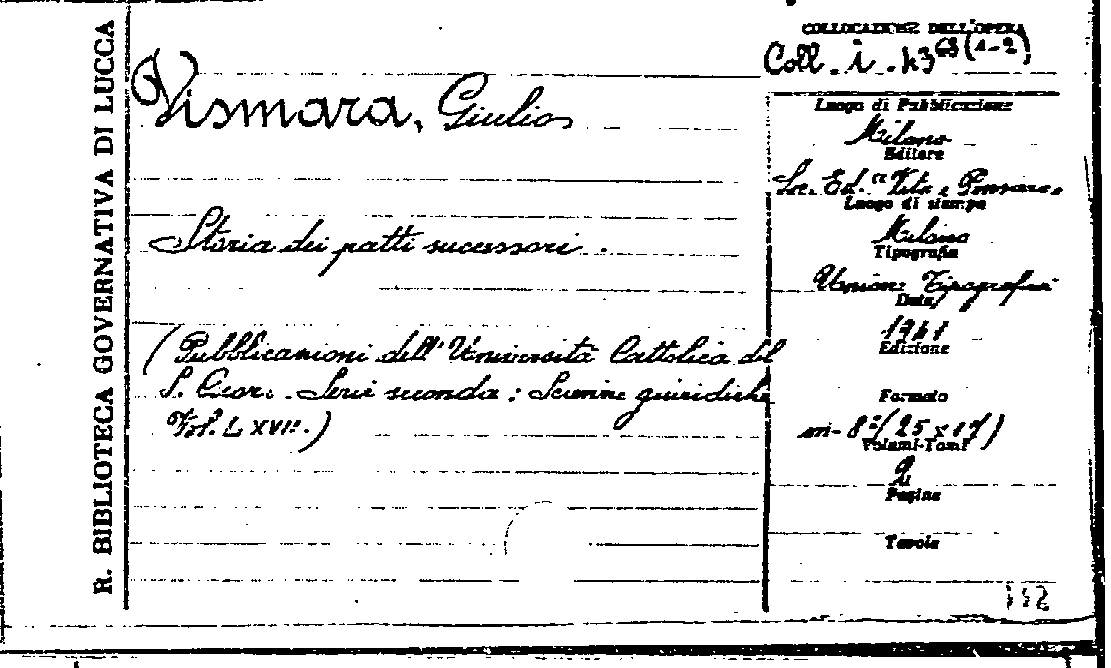 R. BIBLIOTECA GOVERNATIVA DI LUCCA
Vismara, Giulio
Storia dei patti successori.
(Pubblicazioni dell'Università Cattolica del
S. Cuore. Serie seconda: Scienze giuridiche
Vol. LXVII.)
COLLOCAZIONE DELL'OPERA
Coll. i. 63 (1-2)
Luogo di Pubblicazione
Milano
Editore
Soc. Ed. "Vita e Pensiero"
Luogo di stampa
Milano
Tipografia
Unione Tipografica
Data
1941
Edizione
Formato
in-8°(25x17)
Volumi-Tomi
2
Pagine
Tavole